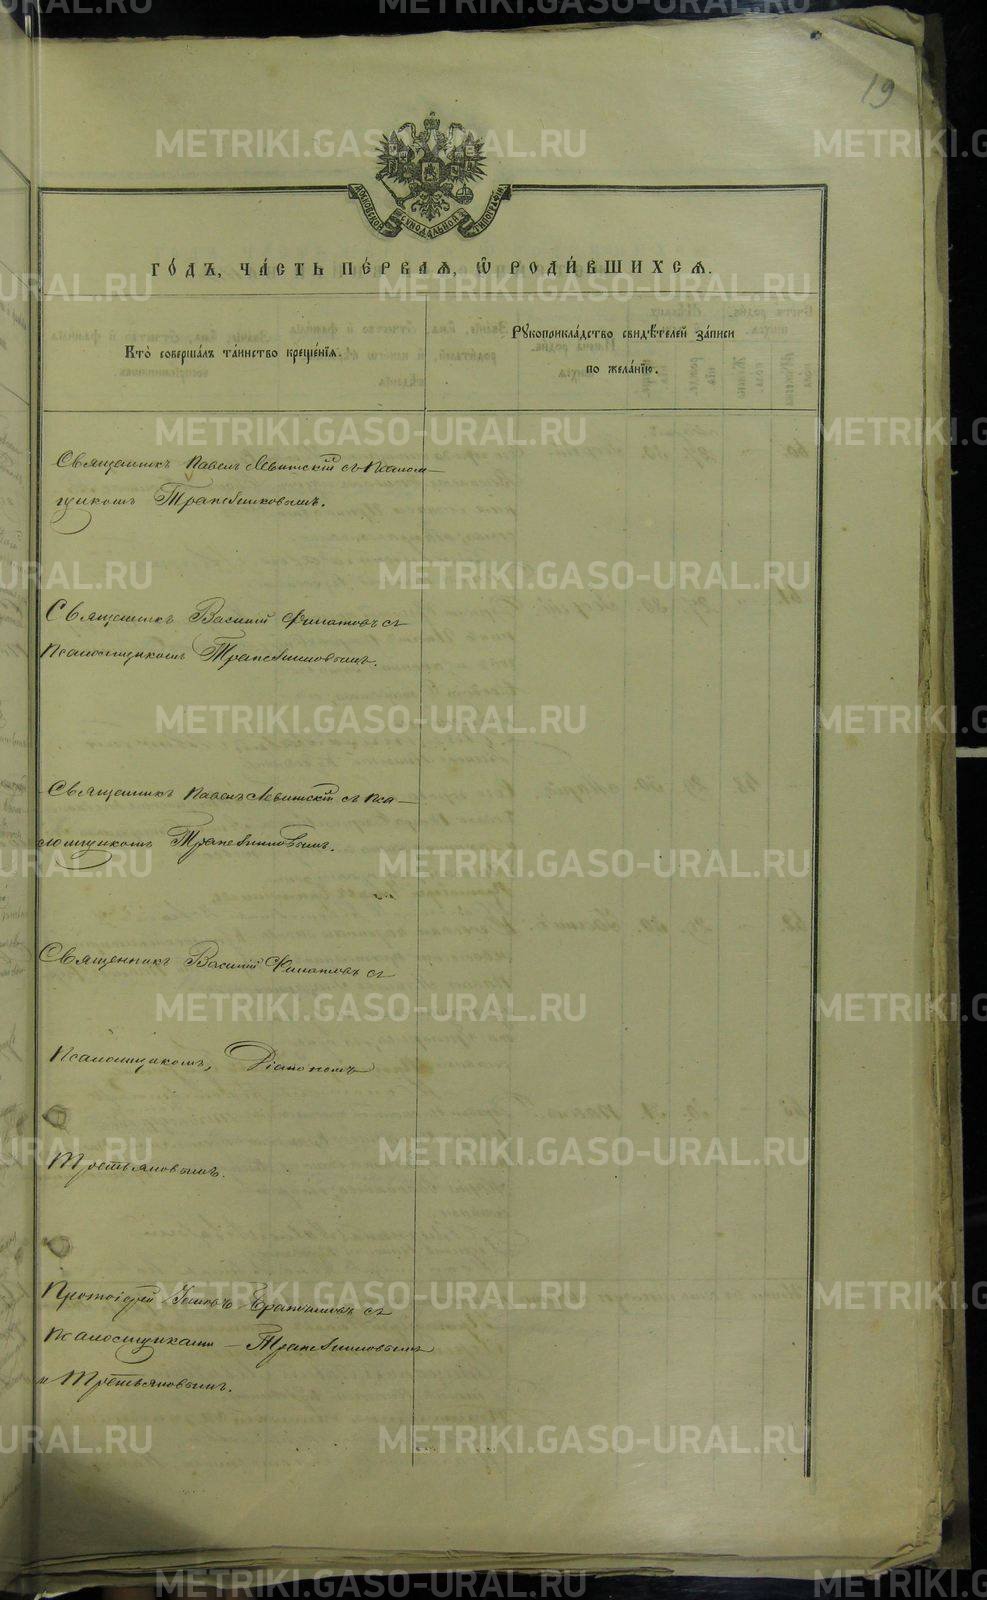 19
МОСКОВСКОЙ СѴНОДАЛЬНОЙ ТИПОГРАФІИ
ГО́ДЪ, ЧА́СТЬ ПЕ́РВАЯ, Ѿ РОДИ́ВШИХСЯ.
Кто̀ соверша́лъ та́инство креще́нїѧ.
Рꙋкоприкла́дство свидѣ́телей за́писи
по жела́нїю.
Священникъ Павелъ Левитскій съ Псалом-
щикомъ Трапезниковымъ.
Священникъ Василій Филатовъ съ
Псаломщикомъ Трапезниковымъ.
Священникъ Павелъ Левитскій съ Пса-
ломщикомъ Трапезниковымъ.
Священникъ Василій Филатовъ съ
Псаломщикомъ, Діакономъ
Третьяковымъ.
Протоіерей съ
Псаломщиками - Трапезниковымъ
и Третьяковымъ.
METRIKI.GASO-URAL.RU